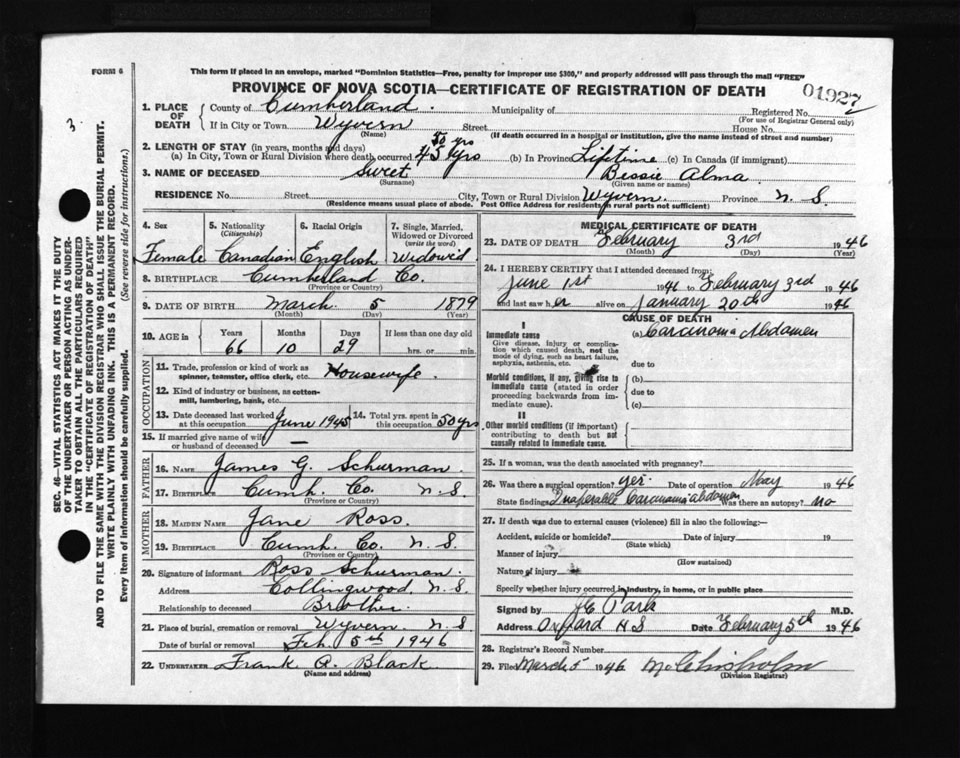 FORM 6
This form if placed in an envelope, marked "Dominion Statistics—Free, penalty for improper use $300," and properly addressed will pass through the mail "FREE"
PROVINCE OF NOVA SCOTIA—CERTIFICATE OF REGISTRATION OF DEATH
01927
3.
1. PLACE OF DEATH County of Cumberland. Municipality of Registered No.
(For use of Registrar General only)
If in City or Town Wyvern Street House No.
(Name) (If death occurred in a hospital or institution, give the name instead of street and number)
2. LENGTH OF STAY (in years, months and days) 50 yrs
(a) In City, Town or Rural Division where death occurred 45 yrs (b) In Province Lifetime (c) In Canada (if immigrant)
3. NAME OF DECEASED Sweet Bessie Alma
(Surname) (Given name or names)
RESIDENCE No. Street City, Town or Rural Division Wyvern. Province N. S.
(Residence means usual place of abode. Post Office Address for residents in rural parts not sufficient)
4. Sex 5. Nationality (Citizenship) 6. Racial Origin 7. Single, Married, Widowed or Divorced (write the word)
Female Canadian English Widow'd
8. BIRTHPLACE Cumberland Co.
(Province or Country)
9. DATE OF BIRTH March 5 1879
(Month) (Day) (Year)
10. AGE in Years Months Days If less than one day old
66 10 29 hrs. or min.
11. Trade, profession or kind of work as spinner, teamster, office clerk, etc. Housewife.
OCCUPATION
12. Kind of industry or business, as cotton-mill, lumbering, bank, etc.
13. Date deceased last worked at this occupation June 1945 14. Total yrs. spent in this occupation 50 yrs
15. If married give name of wife or husband of deceased —
FATHER
16. NAME James G. Schurman.
17. BIRTHPLACE Cumb. Co. N. S.
(Province or Country)
MOTHER
18. MAIDEN NAME Jane Ross.
19. BIRTHPLACE Cumb. Co. N. S.
(Province or Country)
20. Signature of informant Ross Schurman.
Address Collingwood, N. S.
Relationship to deceased Brother.
21. Place of burial, cremation or removal Wyvern N. S
Date of burial or removal Feb. 5th 1946
22. UNDERTAKER Frank A. Black
(Name and address)
MEDICAL CERTIFICATE OF DEATH
23. DATE OF DEATH February 3rd 1946
(Month) (Day) (Year)
24. I HEREBY CERTIFY that I attended deceased from:
June 1st 1946 to February 3rd 1946
and last saw her alive on January 20th 1946
CAUSE OF DEATH
I
Immediate cause (a) Carcinoma Abdomen
Give disease, injury or complication which caused death, not the mode of dying, such as heart failure, asphyxia, asthenia, etc.
due to
Morbid conditions, if any, giving rise to immediate cause (stated in order proceeding backwards from immediate cause).
(b)
due to
(c)
II
Other morbid conditions (if important) contributing to death but not causally related to immediate cause.
25. If a woman, was the death associated with pregnancy?
26. Was there a surgical operation? yes. Date of operation May 1946
State findings Inoperable Carcinoma abdomen Was there an autopsy? no
27. If death was due to external causes (violence) fill in also the following:—
Accident, suicide or homicide? Date of injury 19
(State which)
Manner of injury
(How sustained)
Nature of injury
Specify whether injury occurred in industry, in home, or in public place
Signed by Park M.D.
Address Oxford N S Date February 5th 1946
28. Registrar's Record Number
29. Filed March 5 1946 Chisholm
(Division Registrar)
SEC. 46—VITAL STATISTICS ACT MAKES IT THE DUTY
OF THE UNDERTAKER OR PERSON ACTING AS UNDER-
TAKER TO OBTAIN ALL THE PARTICULARS REQUIRED
IN THE "CERTIFICATE OF REGISTRATION OF DEATH"
AND TO FILE THE SAME WITH THE DIVISION REGISTRAR WHO SHALL ISSUE THE BURIAL PERMIT.
WRITE PLAINLY WITH UNFADING INK. THIS IS A PERMANENT RECORD.
Every item of information should be carefully supplied. (See reverse side for instructions.)